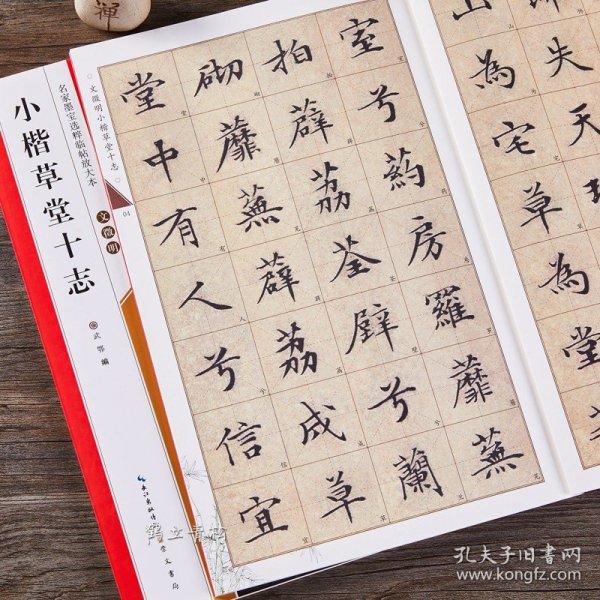 小楷草堂十志
名家墨宝选粹临帖放大本
文徵明
武鄂 编
长江出版传媒
崇文书局
文徵明小楷草堂十志
04
室兮葯房羅蘼蕪
拍薜荔荃壁兮蘭
砌蘼蕪薜荔成草
堂中有人兮信宜
山為宅草為堂
失天
禪
孔夫子旧书网
www.kongfz.com